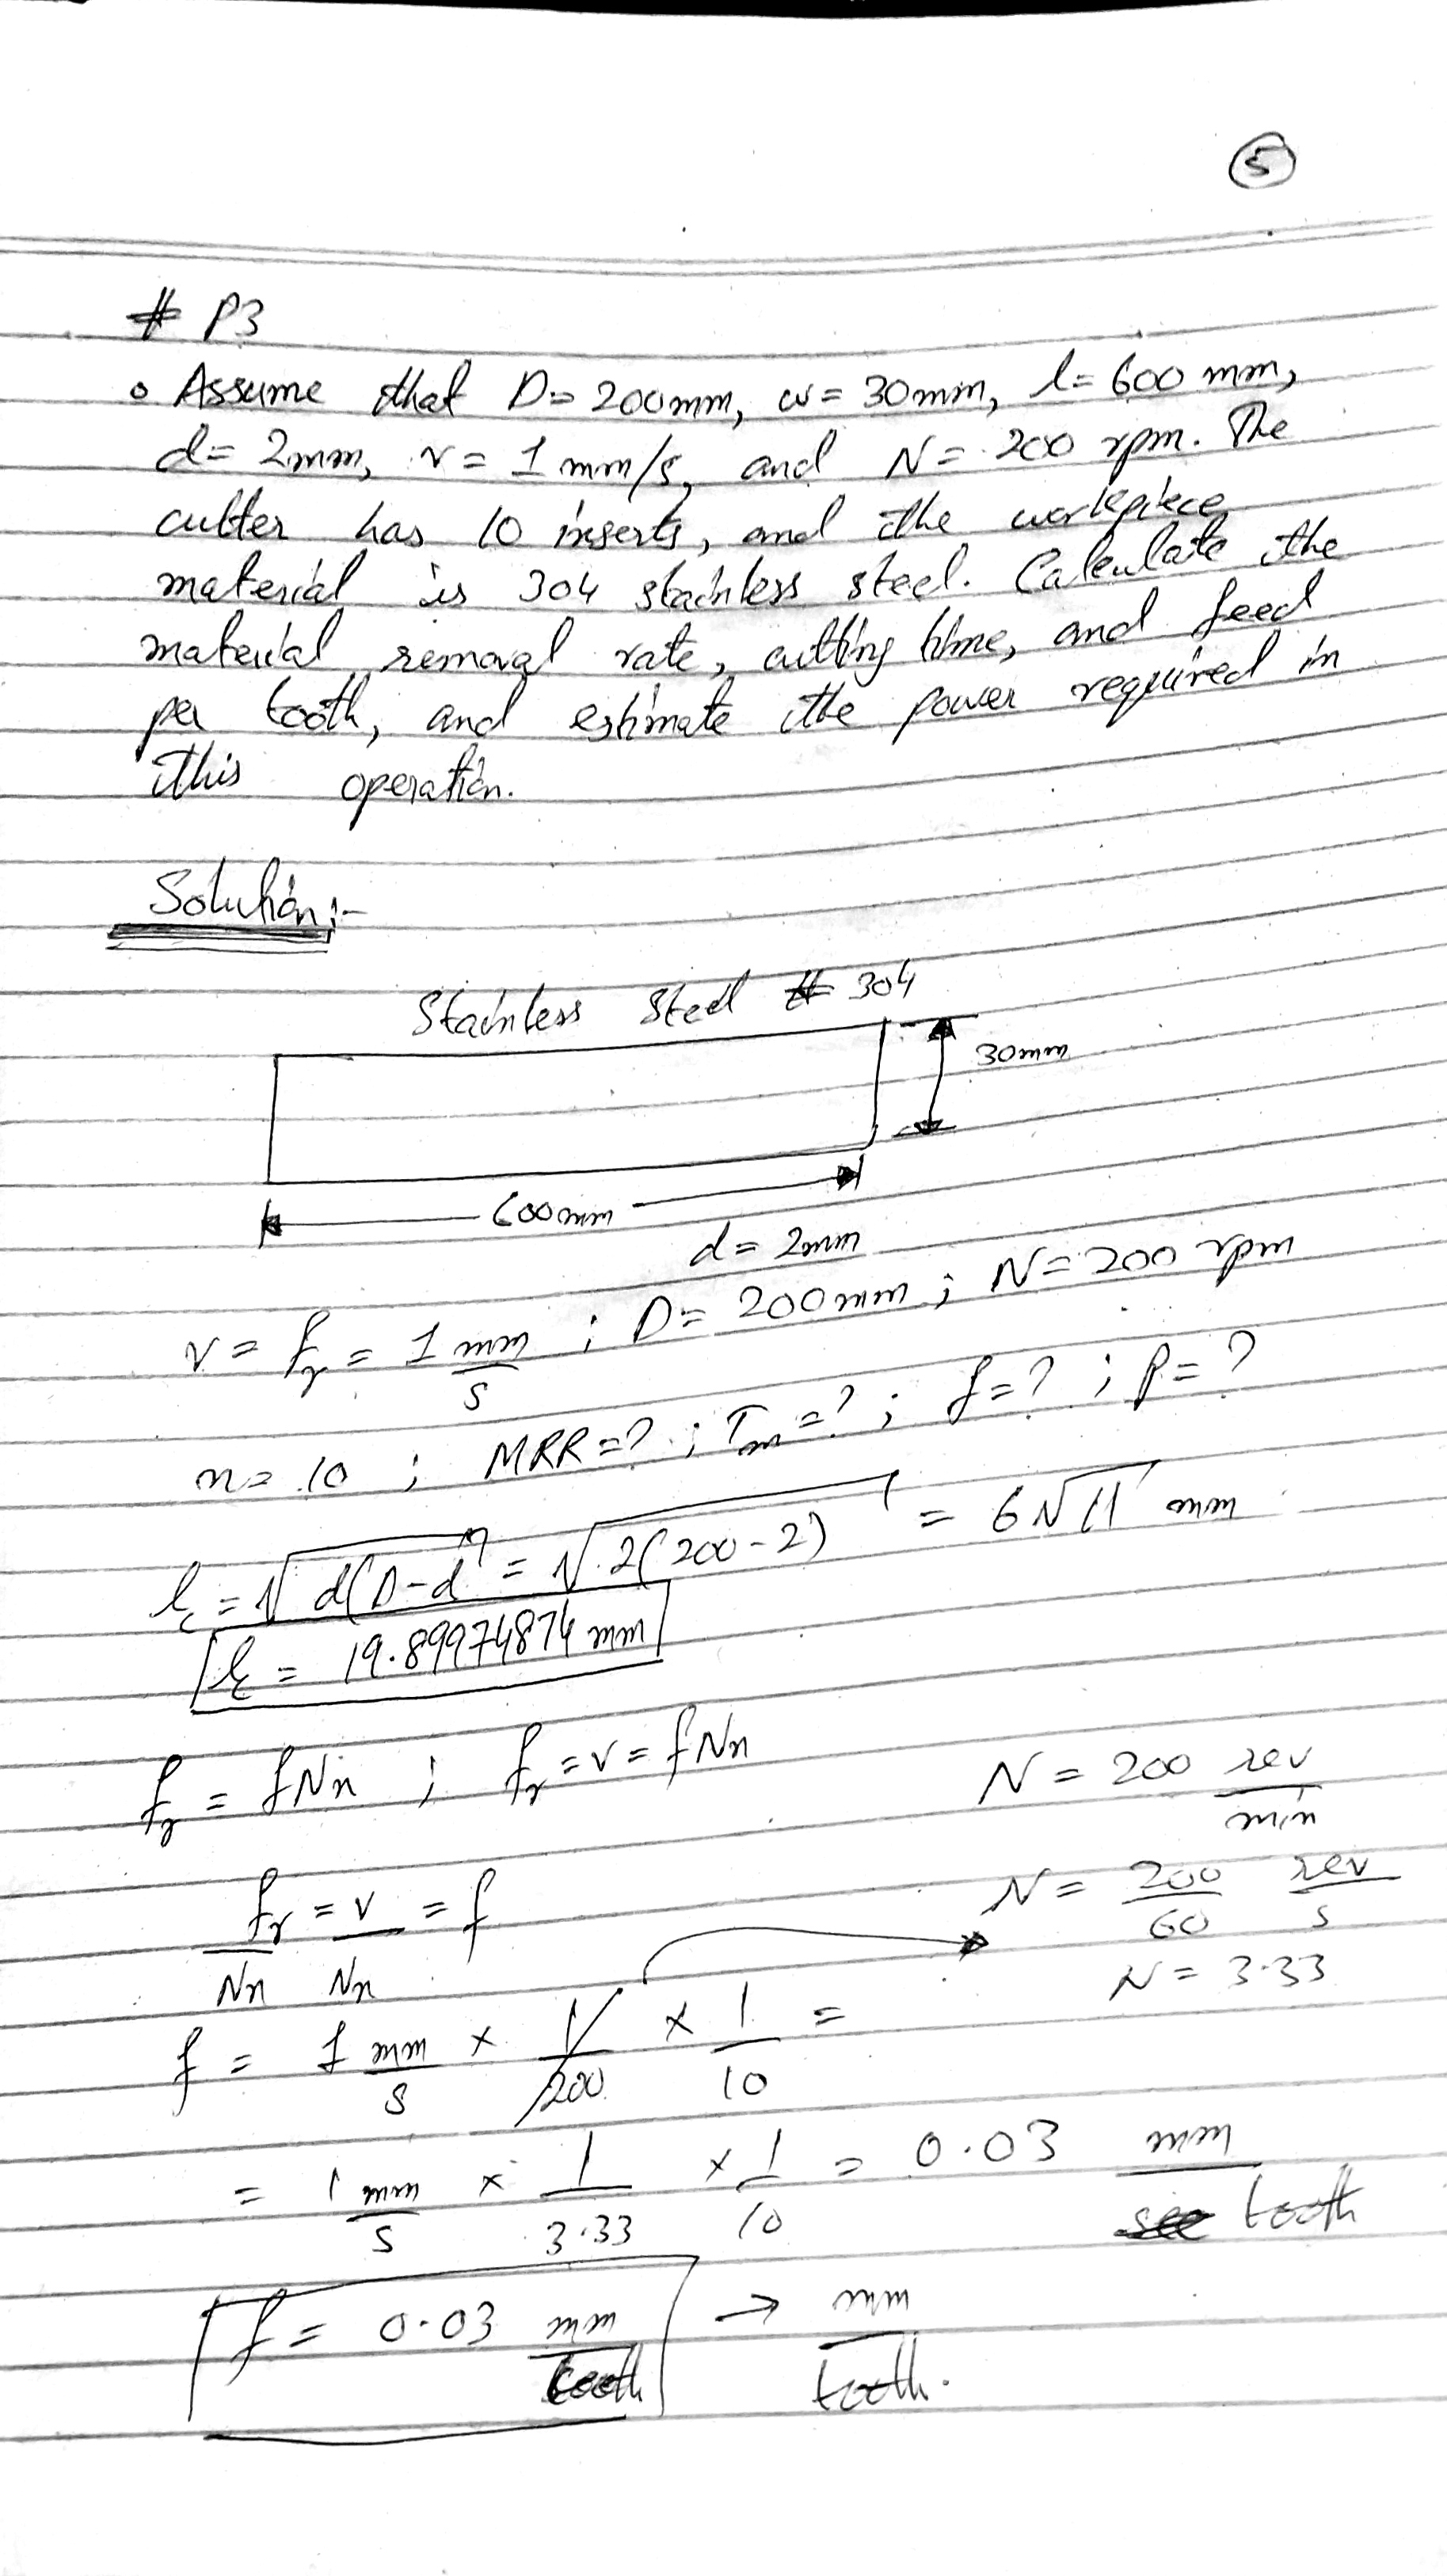 5
# P3
o Assume that D = 200mm, w = 30mm, l = 600 mm,
d = 2mm, v = 1 mm/s, and N = 200 rpm. The
cutter has 10 inserts, and the workpiece
material is 304 stainless steel. Calculate the
material removal rate, cutting time, and feed
per tooth, and estimate the power required in
this operation.
Solution:-
Stainless Steel # 304
30mm
600mm
d = 2mm
v = fr = 1 mm/s ; D = 200mm ; N = 200 rpm
n = 10 ; MRR = ? ; Tm = ? ; f = ? ; P = ?
lc = √d(D-d) = √2(200-2) = 6√11 mm
lc = 19.89974874 mm
fr = fNn ; fr = v = fNn
N = 200 rev/min
fr/Nn = v/Nn = f
N = 200/60 rev/s
N = 3.33
f = 1 mm/s × 1/200 × 1/10 =
= 1 mm/s × 1/3.33 × 1/10 = 0.03 mm/tooth
f = 0.03 mm/tooth → mm/tooth.